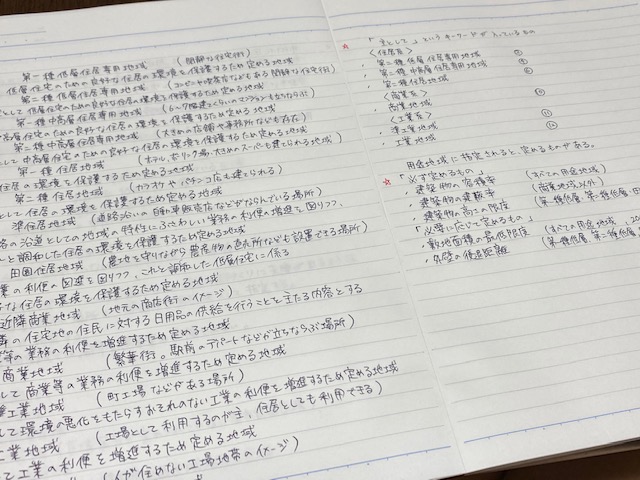 第一種低層住居専用地域 (閑静な住宅街)
低層住宅のための良好な住居の環境を保護するため定める地域
第二種低層住居専用地域 (コンビニや喫茶店などもある閑静な住宅街)
として低層住宅のための良好な住居の環境を保護するため定める地域
第一種中高層住居専用地域 (3〜4階建てくらいのマンションもちならぶ)
中高層住宅のための良好な住居の環境を保護するため定める地域
第二種中高層住居専用地域 (大きめの店舗や事務所なども存在)
として中高層住宅のための良好な住居の環境を保護するため定める地域
第一種住居地域 (ホテル、ボーリング場、大きめのスーパーも建てられる地域)
住居の環境を保護するため定める地域
第二種住居地域 (カラオケやパチンコ店も建てられる)
として住居の環境を保護するため定める地域
準住居地域 (道路沿いの自動車販売店などがならんでいる場所)
路の沿道としての地域の特性にふさわしい業務の利便の増進を図りつつ、
と調和した住居の環境を保護するため定める地域
田園住居地域 (農地を守りながら農産物の直売所なども設置できる場所)
業の利便の図進を図りつつ、これと調和した低層住宅に係る
な住居の環境を保護するため定める地域
近隣商業地域 (地元の商店街のイメージ)
隣の住宅地の住民に対する日用品の供給を行うことを主たる内容とする
等の業務の利便を増進するため定める地域
商業地域 (繁華街。駅前のデパートなどが立ちならぶ場所)
して商業等の業務の利便を増進するため定める地域
業地域 (町工場などがある場所)
して環境の悪化をもたらすおそれのない工業の利便を増進するため定める地域
業地域 (工場として利用するのが主、住居としても利用できる)
て工業の利便を増進するため定める地域
(人が住めない工場地帯のイメージ)
☆ 「主として」というキーワードが入っているもの
<住居系>
・第二種低層住居専用地域 ②
・第二種中高層住居専用地域 ④
・第二種住居地域 ⑥
<商業系>
・商業地域
<工業系>
・準工業地域 ⑪
・工業地域 ⑫
用途地域に指定されると定めるものがある。
☆ 「必ず定めるもの」
・建築物の容積率 (すべての用途地域)
・建築物の建蔽率 (商業地域以外)
・建築物の高さの限度 (第一種低層、第二種低層、田
「必要に応じて定めるもの」
・敷地面積の最低限度 (すべての用途地域
・外壁の後退距離 (第一種低層、第二種低層